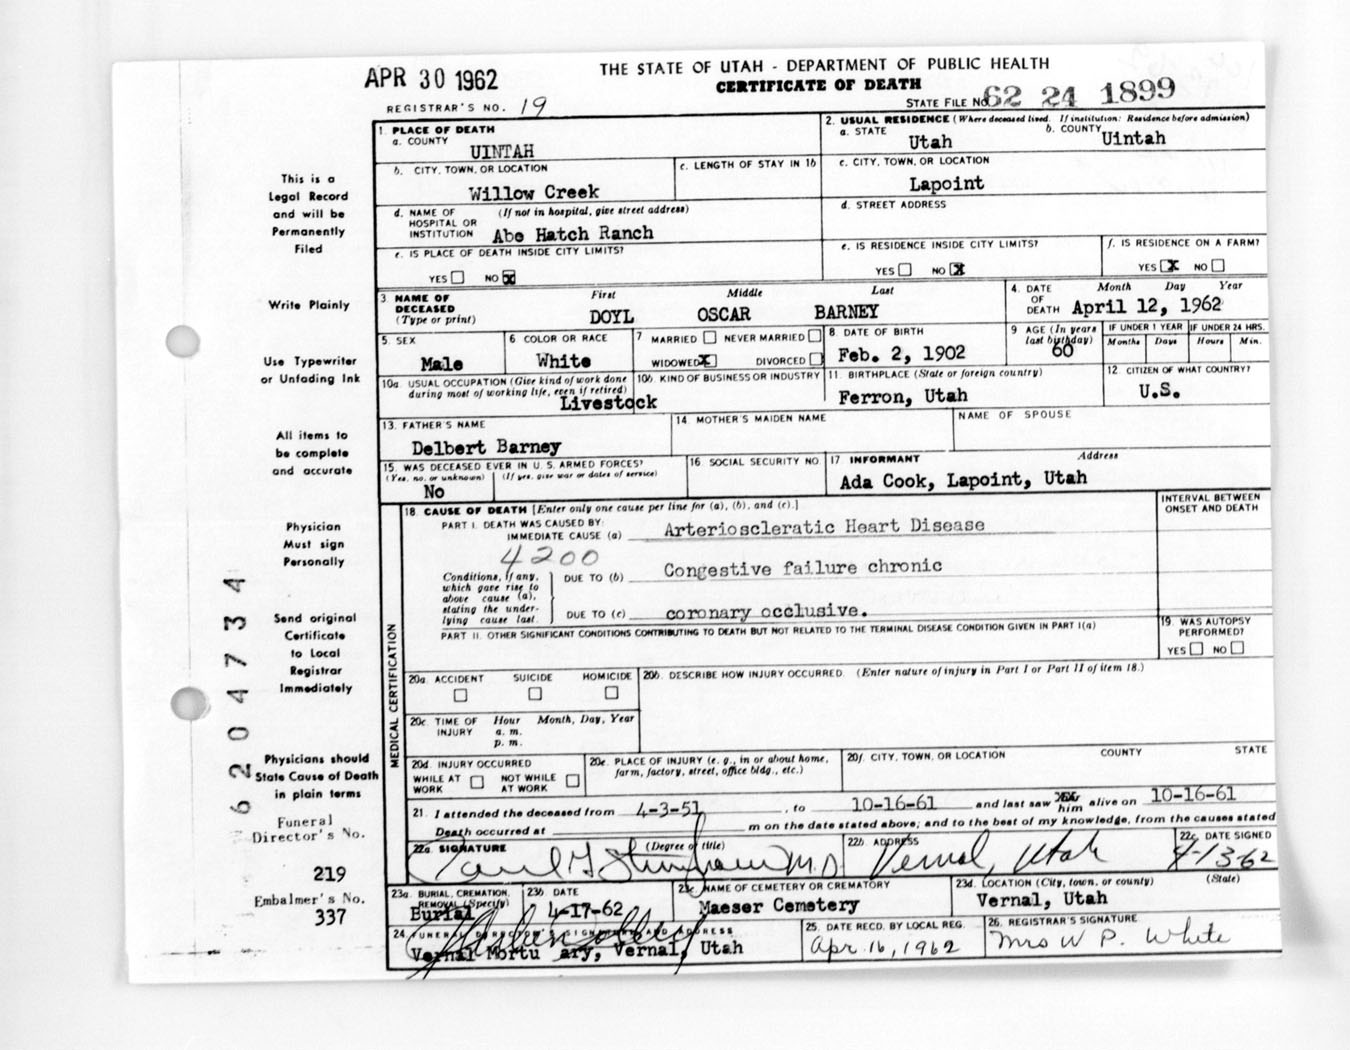 APR 30 1962
THE STATE OF UTAH - DEPARTMENT OF PUBLIC HEALTH
CERTIFICATE OF DEATH
REGISTRAR'S NO. 19
STATE FILE NO. 62 24 1899
This is a
Legal Record
and will be
Permanently
Filed
Write Plainly
Use Typewriter
or Unfading Ink
All items to
be complete
and accurate
Physician
Must sign
Personally
Send original
Certificate
to Local
Registrar
Immediately
Physicians should
State Cause of Death
in plain terms
Funeral
Director's No.
219
Embalmer's No.
337
6204734
1. PLACE OF DEATH
a. COUNTY
UINTAH
2. USUAL RESIDENCE (Where deceased lived. If institution: Residence before admission)
a. STATE
Utah
b. COUNTY
Uintah
b. CITY, TOWN, OR LOCATION
Willow Creek
c. LENGTH OF STAY IN 1b
c. CITY, TOWN, OR LOCATION
Lapoint
d. NAME OF (If not in hospital, give street address)
HOSPITAL OR
INSTITUTION Abe Hatch Ranch
d. STREET ADDRESS
e. IS PLACE OF DEATH INSIDE CITY LIMITS?
YES NO X
e. IS RESIDENCE INSIDE CITY LIMITS?
YES NO X
f. IS RESIDENCE ON A FARM?
YES X NO
3. NAME OF
DECEASED
(Type or print)
First Middle Last
DOYL OSCAR BARNEY
4. DATE
OF
DEATH
Month Day Year
April 12, 1962
5. SEX
Male
6 COLOR OR RACE
White
7 MARRIED NEVER MARRIED
WIDOWED X DIVORCED
8. DATE OF BIRTH
Feb. 2, 1902
9 AGE (In years
last birthday)
60
IF UNDER 1 YEAR
Months Days
IF UNDER 24 HRS.
Hours Min.
10a. USUAL OCCUPATION (Give kind of work done
during most of working life, even if retired)
Livestock
10b. KIND OF BUSINESS OR INDUSTRY
11. BIRTHPLACE (State or foreign country)
Ferron, Utah
12 CITIZEN OF WHAT COUNTRY?
U.S.
13. FATHER'S NAME
Delbert Barney
14 MOTHER'S MAIDEN NAME
NAME OF SPOUSE
15. WAS DECEASED EVER IN U. S. ARMED FORCES?
(Yes, no, or unknown) (If yes, give war or dates of service)
No
16. SOCIAL SECURITY NO.
17 INFORMANT Address
Ada Cook, Lapoint, Utah
MEDICAL CERTIFICATION
18. CAUSE OF DEATH [Enter only one cause per line for (a), (b), and (c).]
INTERVAL BETWEEN
ONSET AND DEATH
PART I. DEATH WAS CAUSED BY:
IMMEDIATE CAUSE (a) Arterioscleratic Heart Disease
4200
Conditions, if any,
which gave rise to
above cause (a),
stating the under-
lying cause last.
DUE TO (b) Congestive failure chronic
DUE TO (c) coronary occlusive.
PART II. OTHER SIGNIFICANT CONDITIONS CONTRIBUTING TO DEATH BUT NOT RELATED TO THE TERMINAL DISEASE CONDITION GIVEN IN PART I(a)
19. WAS AUTOPSY
PERFORMED?
YES NO
20a. ACCIDENT SUICIDE HOMICIDE
20b. DESCRIBE HOW INJURY OCCURRED. (Enter nature of injury in Part I or Part II of item 18.)
20c. TIME OF Hour Month, Day, Year
INJURY a. m.
p. m.
20d. INJURY OCCURRED
WHILE AT NOT WHILE
WORK AT WORK
20e. PLACE OF INJURY (e. g., in or about home,
farm, factory, street, office bldg., etc.)
20f. CITY, TOWN, OR LOCATION COUNTY STATE
21. I attended the deceased from 4-3-51, to 10-16-61 and last saw him alive on 10-16-61
Death occurred at m on the date stated above; and to the best of my knowledge, from the causes stated
22a. SIGNATURE (Degree or title)
M.D.
22b. ADDRESS
Vernal, Utah
22c. DATE SIGNED
4-13-62
23a. BURIAL, CREMATION,
REMOVAL (Specify)
Burial
23b DATE
4-17-62
23c. NAME OF CEMETERY OR CREMATORY
Maeser Cemetery
23d. LOCATION (City, town, or county) (State)
Vernal, Utah
24 FUNERAL DIRECTOR'S SIGNATURE AND ADDRESS
Vernal Mortu ary, Vernal, Utah
25. DATE RECD. BY LOCAL REG.
Apr. 16, 1962
26. REGISTRAR'S SIGNATURE
Mrs W. P. White